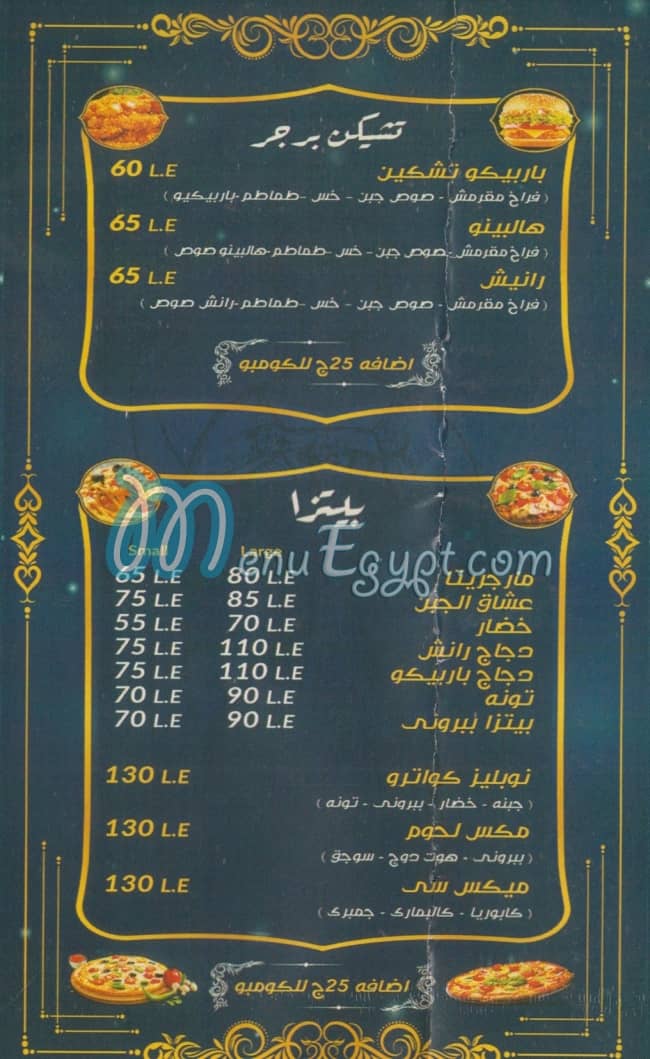 تشيكن برجر
باربيكو تشكين 60 L.E
( فراخ مقرمش - صوص جبن - خس -طماطم-باربيكيو )
هالبينو 65 L.E
( فراخ مقرمش -صوص جبن - خس -طماطم-هالبينو صوص )
رانيش 65 L.E
( فراخ مقرمش - صوص جبن - خس -طماطم-رانش صوص )
اضافه 25ج للكومبو
بيتزا
MenuEgypt.com
Small Large
مارجريتا 80 L.E 65 L.E
عشاق الجبن 85 L.E 75 L.E
خضار 70 L.E 55 L.E
دجاج رانش 110 L.E 75 L.E
دجاج باربيكو 110 L.E 75 L.E
تونه 90 L.E 70 L.E
بيتزا ببرونى 90 L.E 70 L.E
نوبليز كواترو 130 L.E
( جبنه - خضار - ببرونى - تونه )
مكس لحوم 130 L.E
( ببرونى - هوت دوج - سوجق )
ميكس سى 130 L.E
( كابوريا - كاليمارى - جمبرى )
اضافه 25ج للكومبو